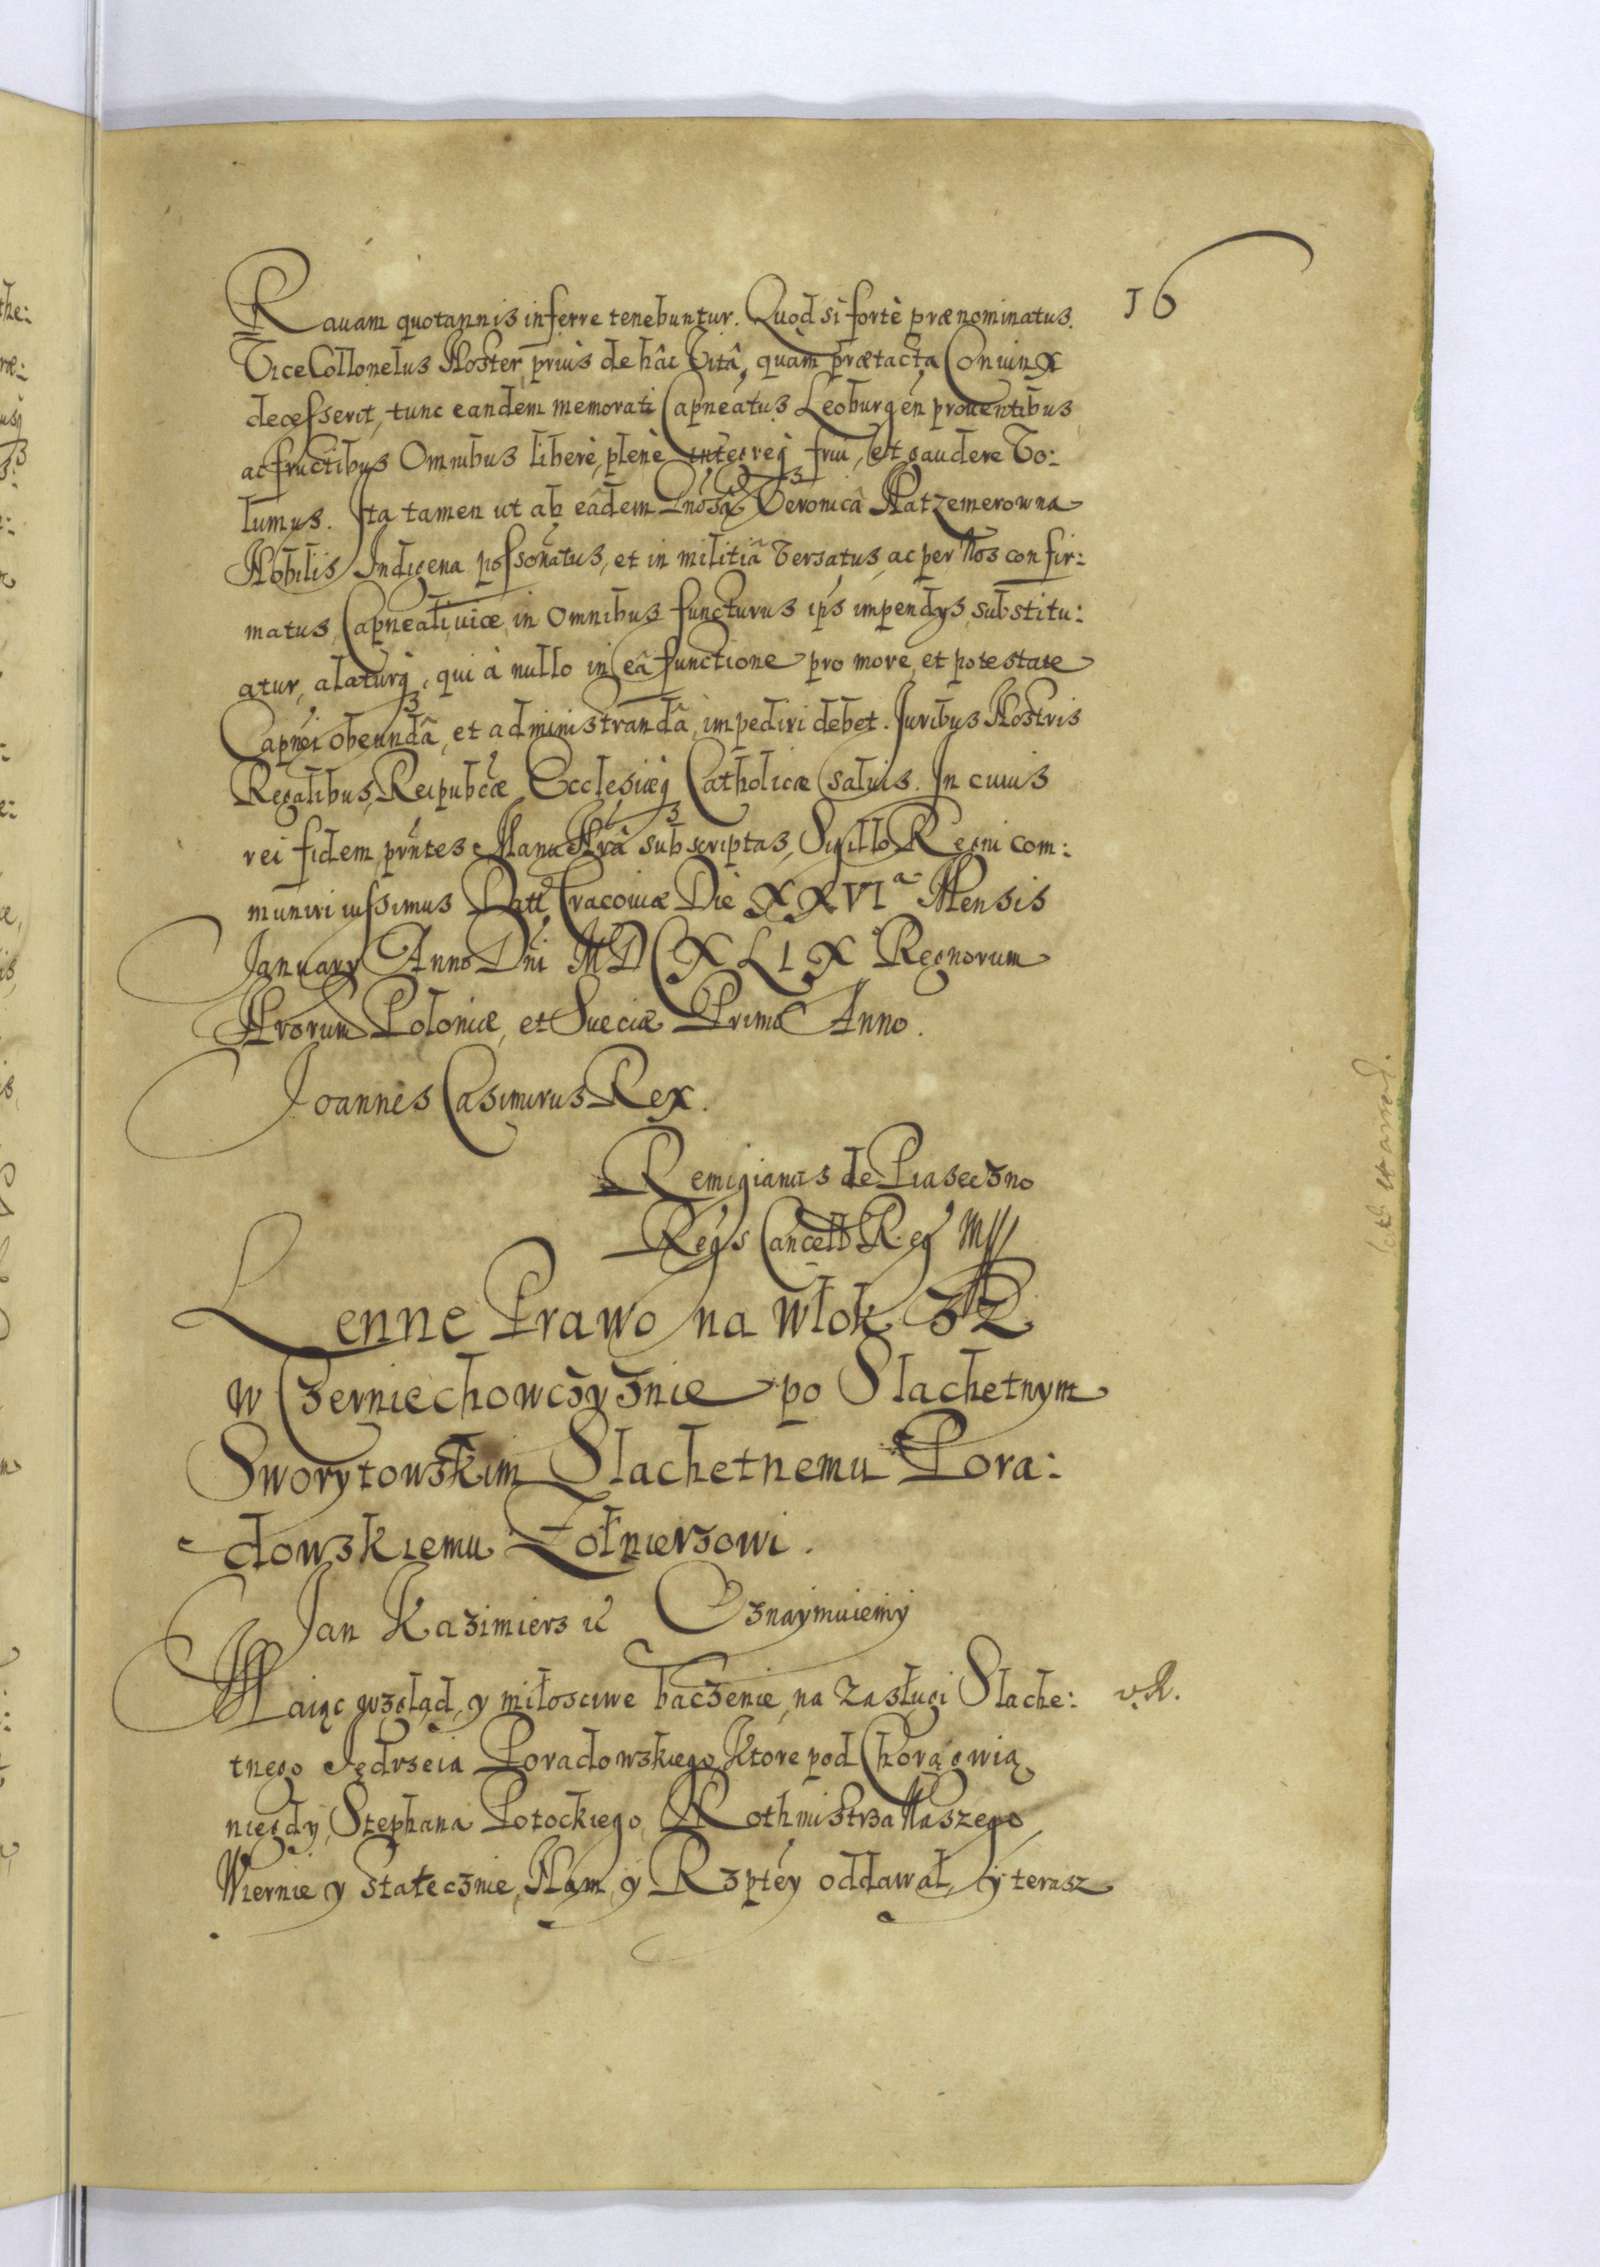 16
Rauam quotannis inferre tenebuntur. Quod si fortè prænominatus
ViceCollonelus Noster priùs de hâc Vitâ, quam prætacta Coniunx
decesserit, tunc eandem memorati Capneatus Leoburgen prouentibus
ac fructibus Omnibus liberè, plenè integreq3 frui, et gaudere Vo:
lumus. Ita tamen ut ab eâdem Gnosa Veronicâ Natzemerowna
Nobilis Indigena possonatus, et in militiâ Versatus, ac per Nos confir:
matus, Capneali uice in Omnibus functurus ips impendys substitu:
atur, alaturq3, qui à nullo in eâ functione pro more et potestate
Capnei obeundâ, et administrandâ impediri debet. Iuribus Nostris
Regalibus, Reipubcæ Ecclesiæq3 Catholicæ saluis. In cuius
rei fidem pntes Manu Nrâ subscriptas, Sigillo Regni com:
muniri iussimus Datt Cracouiæ Die XXVIa Mensis
January Anno Dni MDCXLIXo Regnorum
Nrorum Poloniæ, et Sueciæ Primo Anno.
Joannes Casimirus Rex.
Remigianus de Piaseczno
Regs Cancell R. eg mp
Lenne Prawo na włok 32
w Czerniechowczyznie po Slachetnym
Sworytowskim Slachetnemu Pora:
dowskiemu Zołnierzowi.
Jan Kazimierz etc Oznaymuiemy
Maiąc wzgląd, y miłosciwe baczenie, na zasługi Slache: v.R.
tnego Jędrzeia Poradowskiego, Ktore pod Chorągwią
niegdy Stephana Potockiego Rothmistrza Naszego
Wiernie y statecznie, Nam, y Rzptey oddawał, y terasz